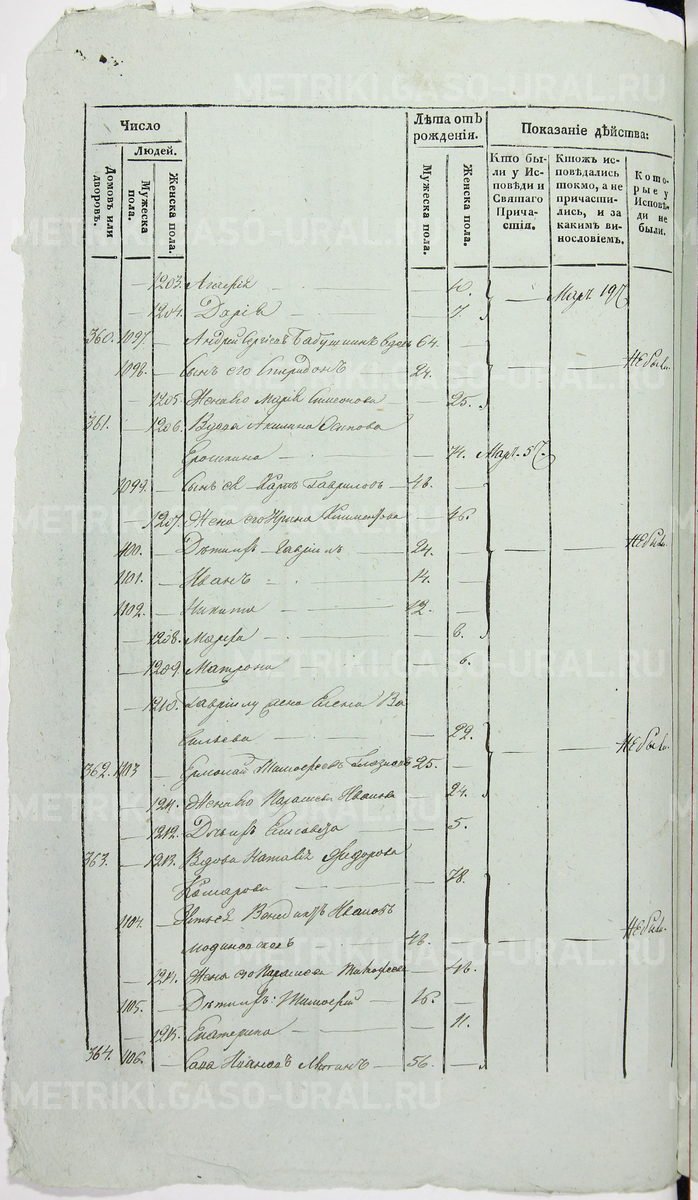 METRIKI.GASO-URAL.RU
Число
Лѣта отъ рожденія.
Показаніе дѣйства:
Людей.
Домовъ или дворовъ.
Мужеска пола.
Женска пола.
Мужеска пола.
Женска пола.
Кто были у Исповѣди и Святаго Причастія.
Ктожъ исповѣдались токмо, а не причастились, и за какимъ винословіемъ.
Которые у Исповѣди не были.
1203. 10. Мар. 19
1204. Дарія 7.
360. 1097. Андрей Бабушкинъ 64.
1098. Сынъ его Спиридонъ 24. Небыли
1205. Жена его Марія Симеонова 25.
361. 1206. Вдова Акилина Осипова
Ерошкина 74. Мар. 5
1099. Сынъ ея Карпъ Гавриловъ 48.
1207. Жена его Ирина 46.
1100. Дѣти ихъ Гавріилъ 24. Небыли
1101. Иванъ 14.
1102. Никита 12.
1208. Марѳа 8.
1209. Матрона 6.
1210. Гавріилу жена Елена Ва
сильева 22. Небыли
362. 1103 Ермолай 25.
1211. Жена его Параскева Иванова 24.
1212. Дочь ихъ Елисавета 5.
363. 1213. Вдова Наталія Ѳедорова
Комарова 78.
1104. Зять ея Венедиктъ Ивановъ Небыли
48.
1214. Жена его Параскева 46.
1105. Дѣти ихъ: Тимоѳей 16.
1215. Екатерина 11.
364. 1106. 56.